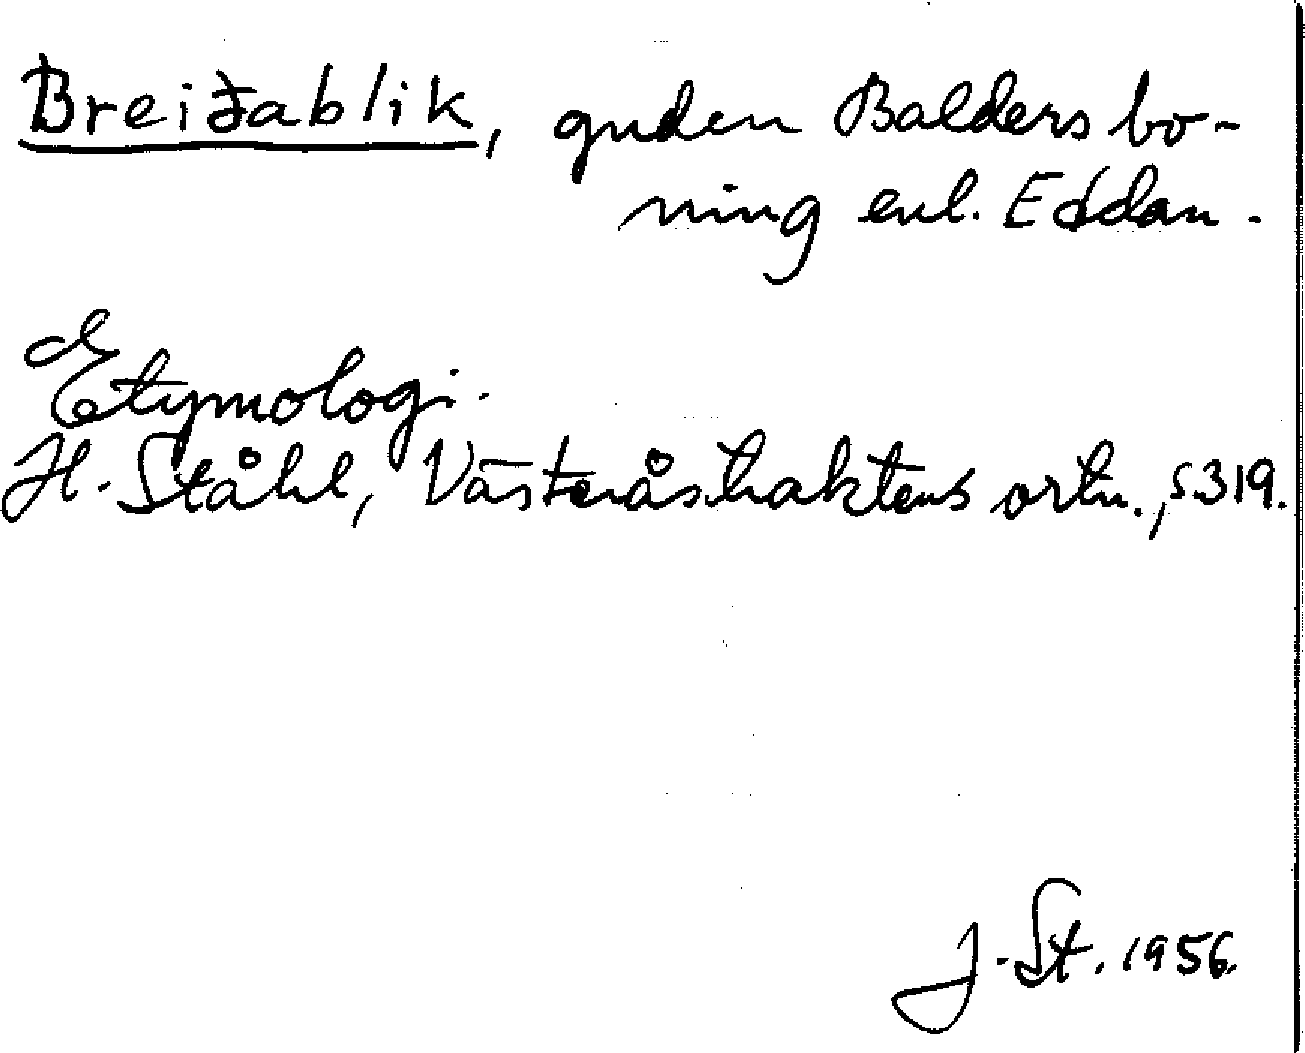 Breiđablik, guden Balders bo-
ning enl. Eddan.
Etymologi.
H. Ståhl, Västeråstraktens ortn., s. 319.
J. St. 1956.